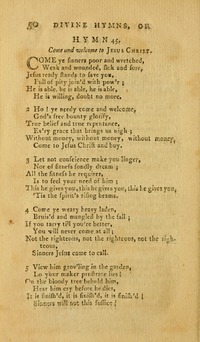 50 DIVINE HYMNS, OR
HYMN 45.
Come and welcome to JESUS CHRIST.
COME ye sinners poor and wretched,
Weak and wounded, sick and sore,
Jesus ready stands to save you,
Full of pity join'd with pow'r;
He is able, he is able, he is able,
He is willing, doubt no more.
2 Ho! ye needy come and welcome,
God's free bounty glorify,
True belief and true repentance,
Ev'ry grace that brings us nigh;
Without money, without money, without money,
Come to Jesus Christ and buy.
3 Let not conscience make you linger,
Nor of fitness fondly dream;
All the fitness he requires,
Is to feel your need of him;
This he gives you, this he gives you, this he gives you,
'Tis the spirit's rising beams.
4 Come ye weary heavy laden,
Bruis'd and mangled by the fall;
If you tarry till you're better,
You will never come at all;
Not the righteous, not the righteous, not the righ-
teous,
Sinners Jesus came to call.
5 View him grov'ling in the garden,
Lo your maker prostrate lies!
On the bloody tree behold him,
Hear him cry before he dies,
It is finish'd, it is finish'd, it is finish'd!
Sinners will not this suffice!